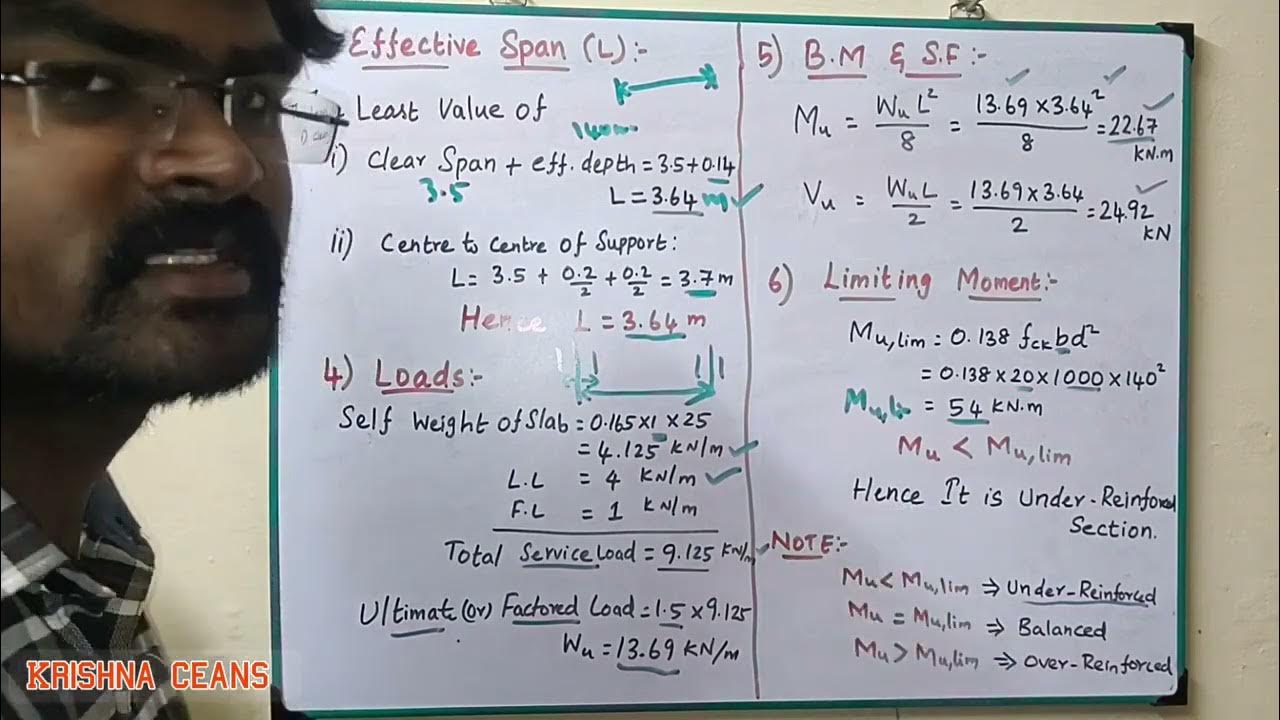 Effective Span (L):-
Least Value of
140mm
i) Clear Span + eff. depth = 3.5+0.14
3.5
L = 3.64 m ✓
ii) Centre to Centre of Support:
L = 3.5 + 0.2/2 + 0.2/2 = 3.7 m
Hence L = 3.64 m
4) Loads:-
Self Weight of Slab = 0.165×1×25
= 4.125 kN/m ✓
L.L = 4 kN/m ✓
F.L = 1 kN/m
Total Service Load = 9.125 kN/m ✓
Ultimate (or) Factored Load = 1.5×9.125
Wu = 13.69 kN/m
5) B.M & S.F:-
Mu = WuL²/8 = 13.69×3.64²/8 = 22.67 KN.m
Vu = WuL/2 = 13.69×3.64/2 = 24.92 KN
6) Limiting Moment:-
Mu,lim = 0.138 fck bd²
= 0.138×20×1000×140²
Mu,li = 54 KN.m
Mu < Mu,lim
Hence It is Under-Reinforced
Section.
NOTE:-
Mu < Mu,lim ⇒ Under-Reinforced
Mu = Mu,lim ⇒ Balanced
Mu > Mu,lim ⇒ Over-Reinforced
KRISHNA CEANS